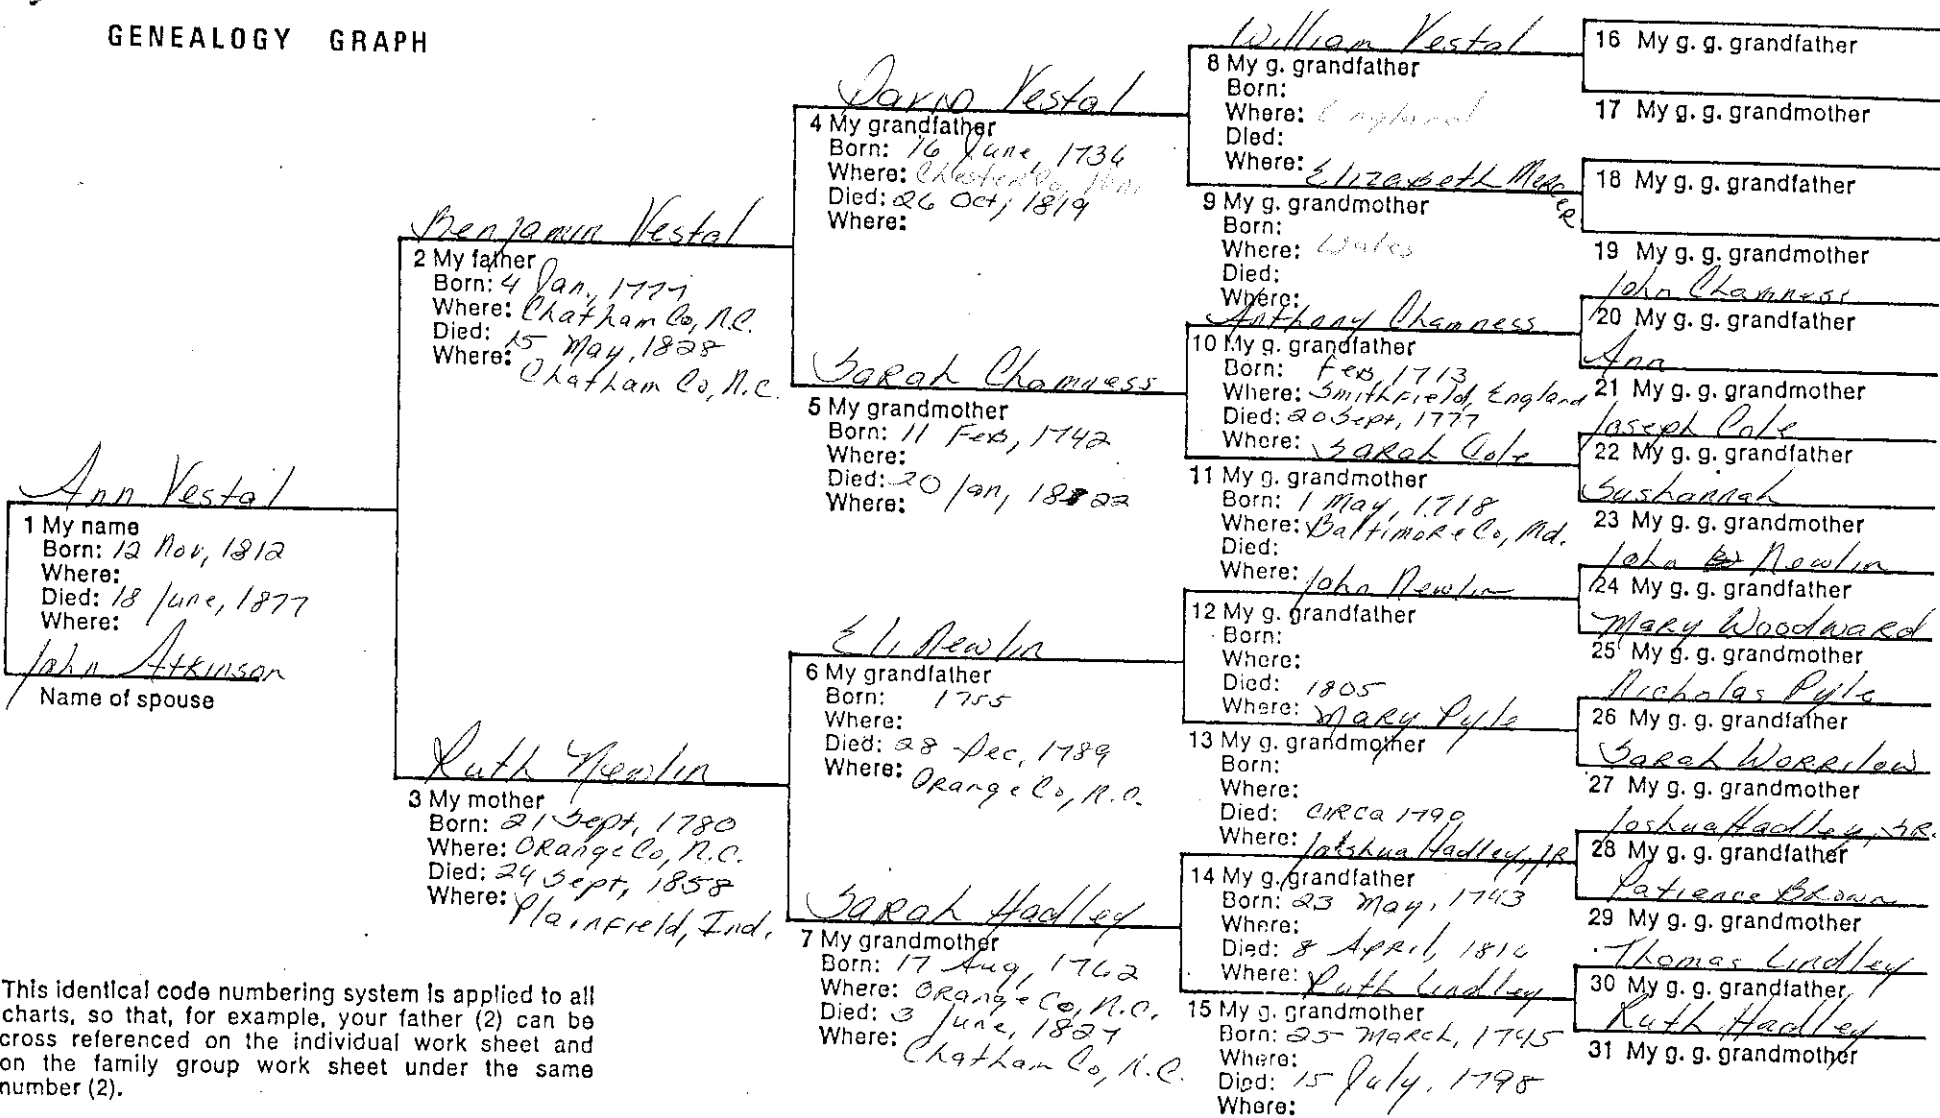 GENEALOGY GRAPH
Ann Vestal
1 My name
Born: 12 Nov, 1812
Where:
Died: 18 June, 1877
Where:
John Atkinson
Name of spouse
Benjamin Vestal
2 My father
Born: 4 Jan., 1777
Where: Chatham Co, N.C.
Died: 15 May, 1828
Where: Chatham Co, N.C.
Ruth Newlin
3 My mother
Born: 21 Sept, 1780
Where: Orange Co, N.C.
Died: 24 Sept, 1858
Where: Plainfield, Ind.
David Vestal
4 My grandfather
Born: 16 June, 1736
Where: Chester Co, Penn
Died: 26 Oct, 1819
Where:
Sarah Chamness
5 My grandmother
Born: 11 Feb, 1742
Where:
Died: 20 Jan, 1822
Where:
Eli Newlin
6 My grandfather
Born: 1755
Where:
Died: 28 Dec, 1789
Where: Orange Co, N.C.
Sarah Hadley
7 My grandmother
Born: 17 Aug, 1762
Where: Orange Co, N.C.
Died: 3 June, 1827
Where: Chatham Co, N.C.
William Vestal
8 My g. grandfather
Born:
Where: England
Died:
Where:
Elizabeth Mercer
9 My g. grandmother
Born:
Where: Wales
Died:
Where:
Anthony Chamness
10 My g. grandfather
Born: Feb 1713
Where: Smithfield, England
Died: 20 Sept, 1777
Where:
Sarah Cole
11 My g. grandmother
Born: 1 May, 1718
Where: Baltimore Co, Md.
Died:
Where:
John Newlin
12 My g. grandfather
Born:
Where:
Died: 1805
Where:
Mary Pyle
13 My g. grandmother
Born:
Where:
Died: circa 1790
Where:
Joshua Hadley, Jr
14 My g. grandfather
Born: 23 May, 1743
Where:
Died: 8 April, 1816
Where:
Ruth Lindley
15 My g. grandmother
Born: 25 March, 1745
Where:
Died: 15 July, 1798
Where:
16 My g. g. grandfather
17 My g. g. grandmother
18 My g. g. grandfather
19 My g. g. grandmother
John Chamness
20 My g. g. grandfather
Ann
21 My g. g. grandmother
Joseph Cole
22 My g. g. grandfather
Sushannah
23 My g. g. grandmother
John Newlin
24 My g. g. grandfather
Mary Woodward
25 My g. g. grandmother
Nicholas Pyle
26 My g. g. grandfather
Sarah Worrilow
27 My g. g. grandmother
Joshua Hadley, Sr.
28 My g. g. grandfather
Patience Brown
29 My g. g. grandmother
Thomas Lindley
30 My g. g. grandfather
Ruth Hadley
31 My g. g. grandmother
This identical code numbering system is applied to all
charts, so that, for example, your father (2) can be
cross referenced on the individual work sheet and
on the family group work sheet under the same
number (2).